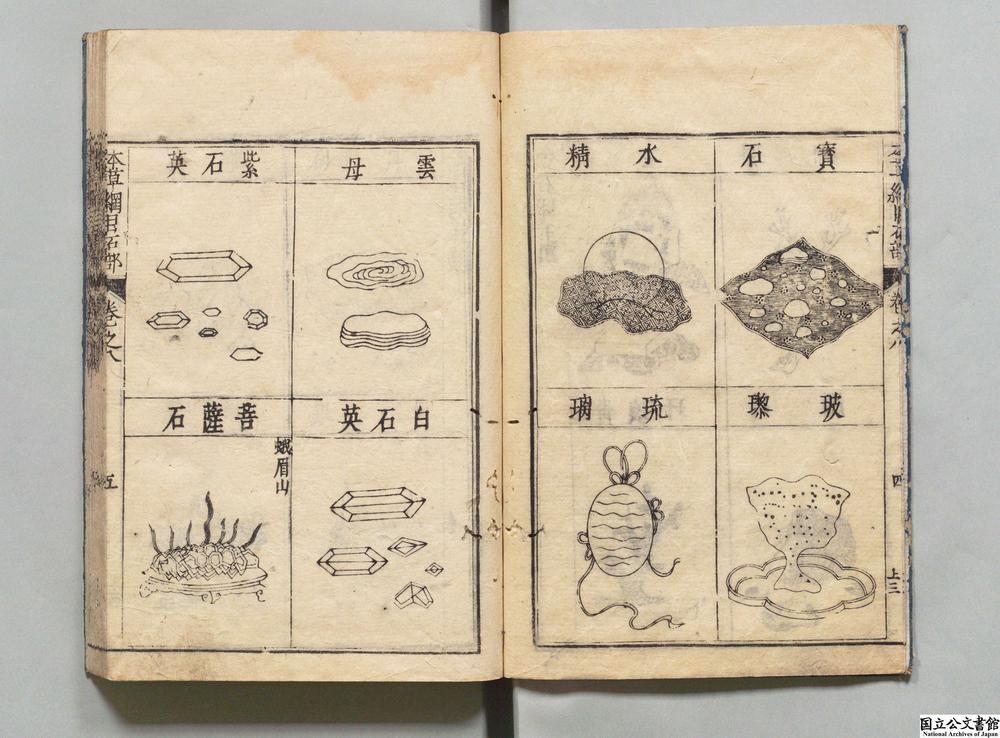 本草綱目石部
卷之八
四
上三
寶石
水精
玻瓈
琉璃
雲母
紫石英
白石英
菩薩石
蛾眉山
本草綱目石部
卷之八
五
国立公文書館
National Archives of Japan